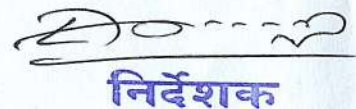 निर्देशक